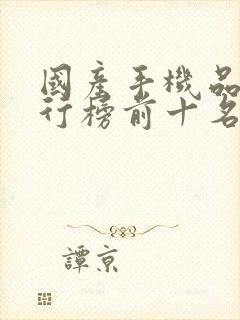 國產手機品
行榜前十名
譚京